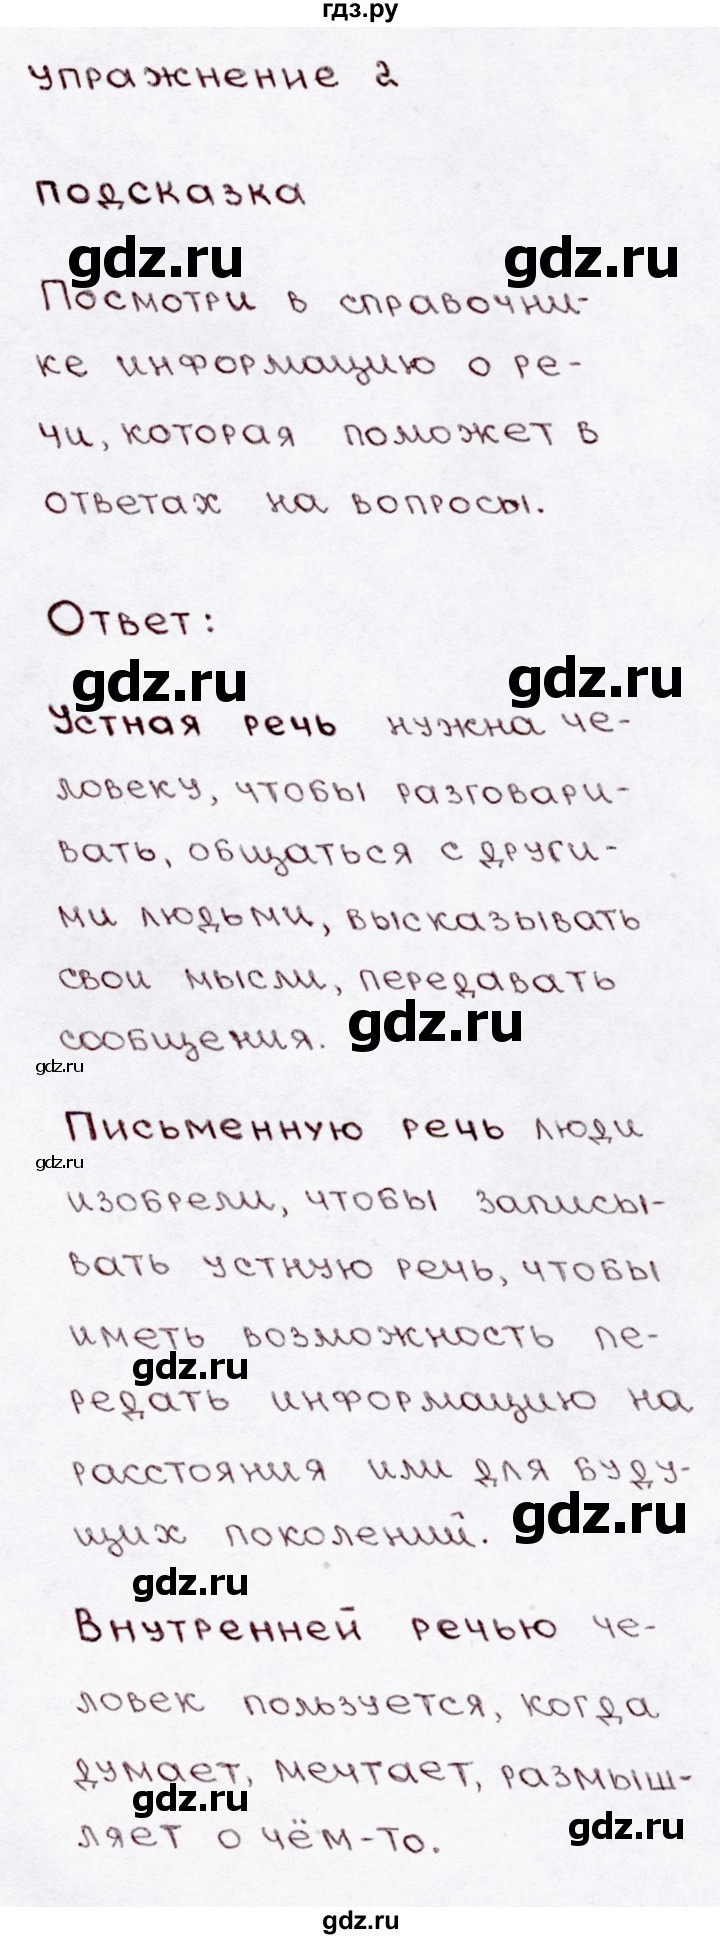 гдз.ру
упражнение 2
подсказка
gdz.ru gdz.ru
Посмотри в справочни-
ке информацию о ре-
чи, которая поможет в
ответах на вопросы.
Ответ:
gdz.ru gdz.ru
Устная речь нужна че-
ловеку, чтобы разговари-
вать, общаться с други-
ми людьми, высказывать
свои мысли, передавать
сообщения. gdz.ru
gdz.ru
Письменную речь люди
gdz.ru
изобрели, чтобы записы-
вать устную речь, чтобы
иметь возможность пе-
gdz.ru
редать информацию на
расстояния или для буду-
щих поколений. gdz.ru
gdz.ru
Внутренней речью че-
ловек пользуется, когда
думает, мечтает, размыш-
gdz.ru gdz.ru
ляет о чём-то.
gdz.ru